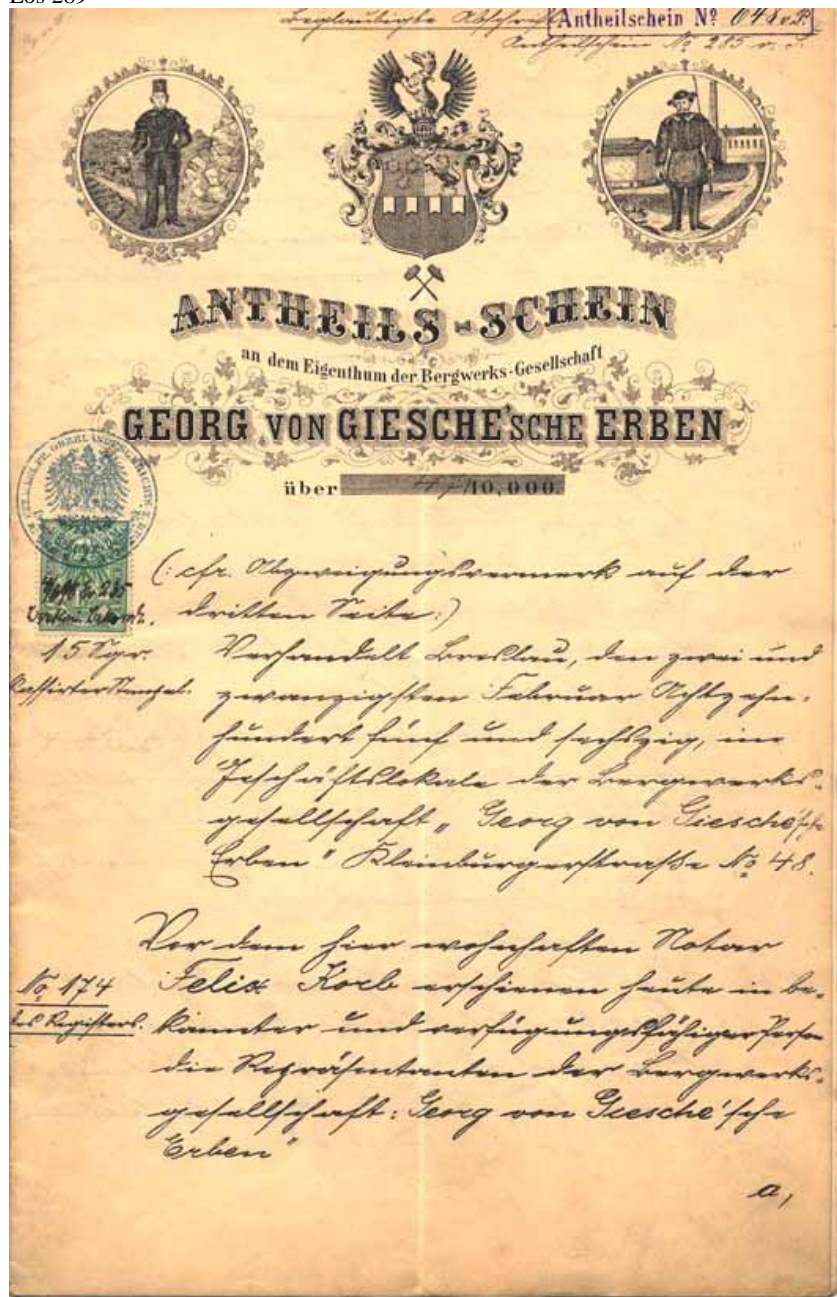 Los 289
Beglaubigte Abschrift
Antheilschein Nº 648 v. P.
Antheilschein No 285 v. S.
ANTHEILS-SCHEIN
an dem Eigenthum der Bergwerks-Gesellschaft
GEORG VON GIESCHE'SCHE ERBEN
über /10,000.
(: cfr. Abzweigungsvermerk auf der
dritten Seite :)
15 Sgr.
Kassirter Stempel.
Verhandelt Breslau, den zwei und
zwanzigsten Februar Achtzehn-
hundert fünf und sechszig, im
Geschäftslokale der Bergwerks-
gesellschaft „Georg von Giesche'sche
Erben" Kleinburgerstraße No 48.
Vor dem hier wohnhaften Notar
No 174
des Registers.
Felix Korb erschienen heute in be-
kannter und verfügungsfähiger Person
die Repräsentanten der Bergwerks-
gesellschaft: Georg von Giesche'sche
Erben"
a,